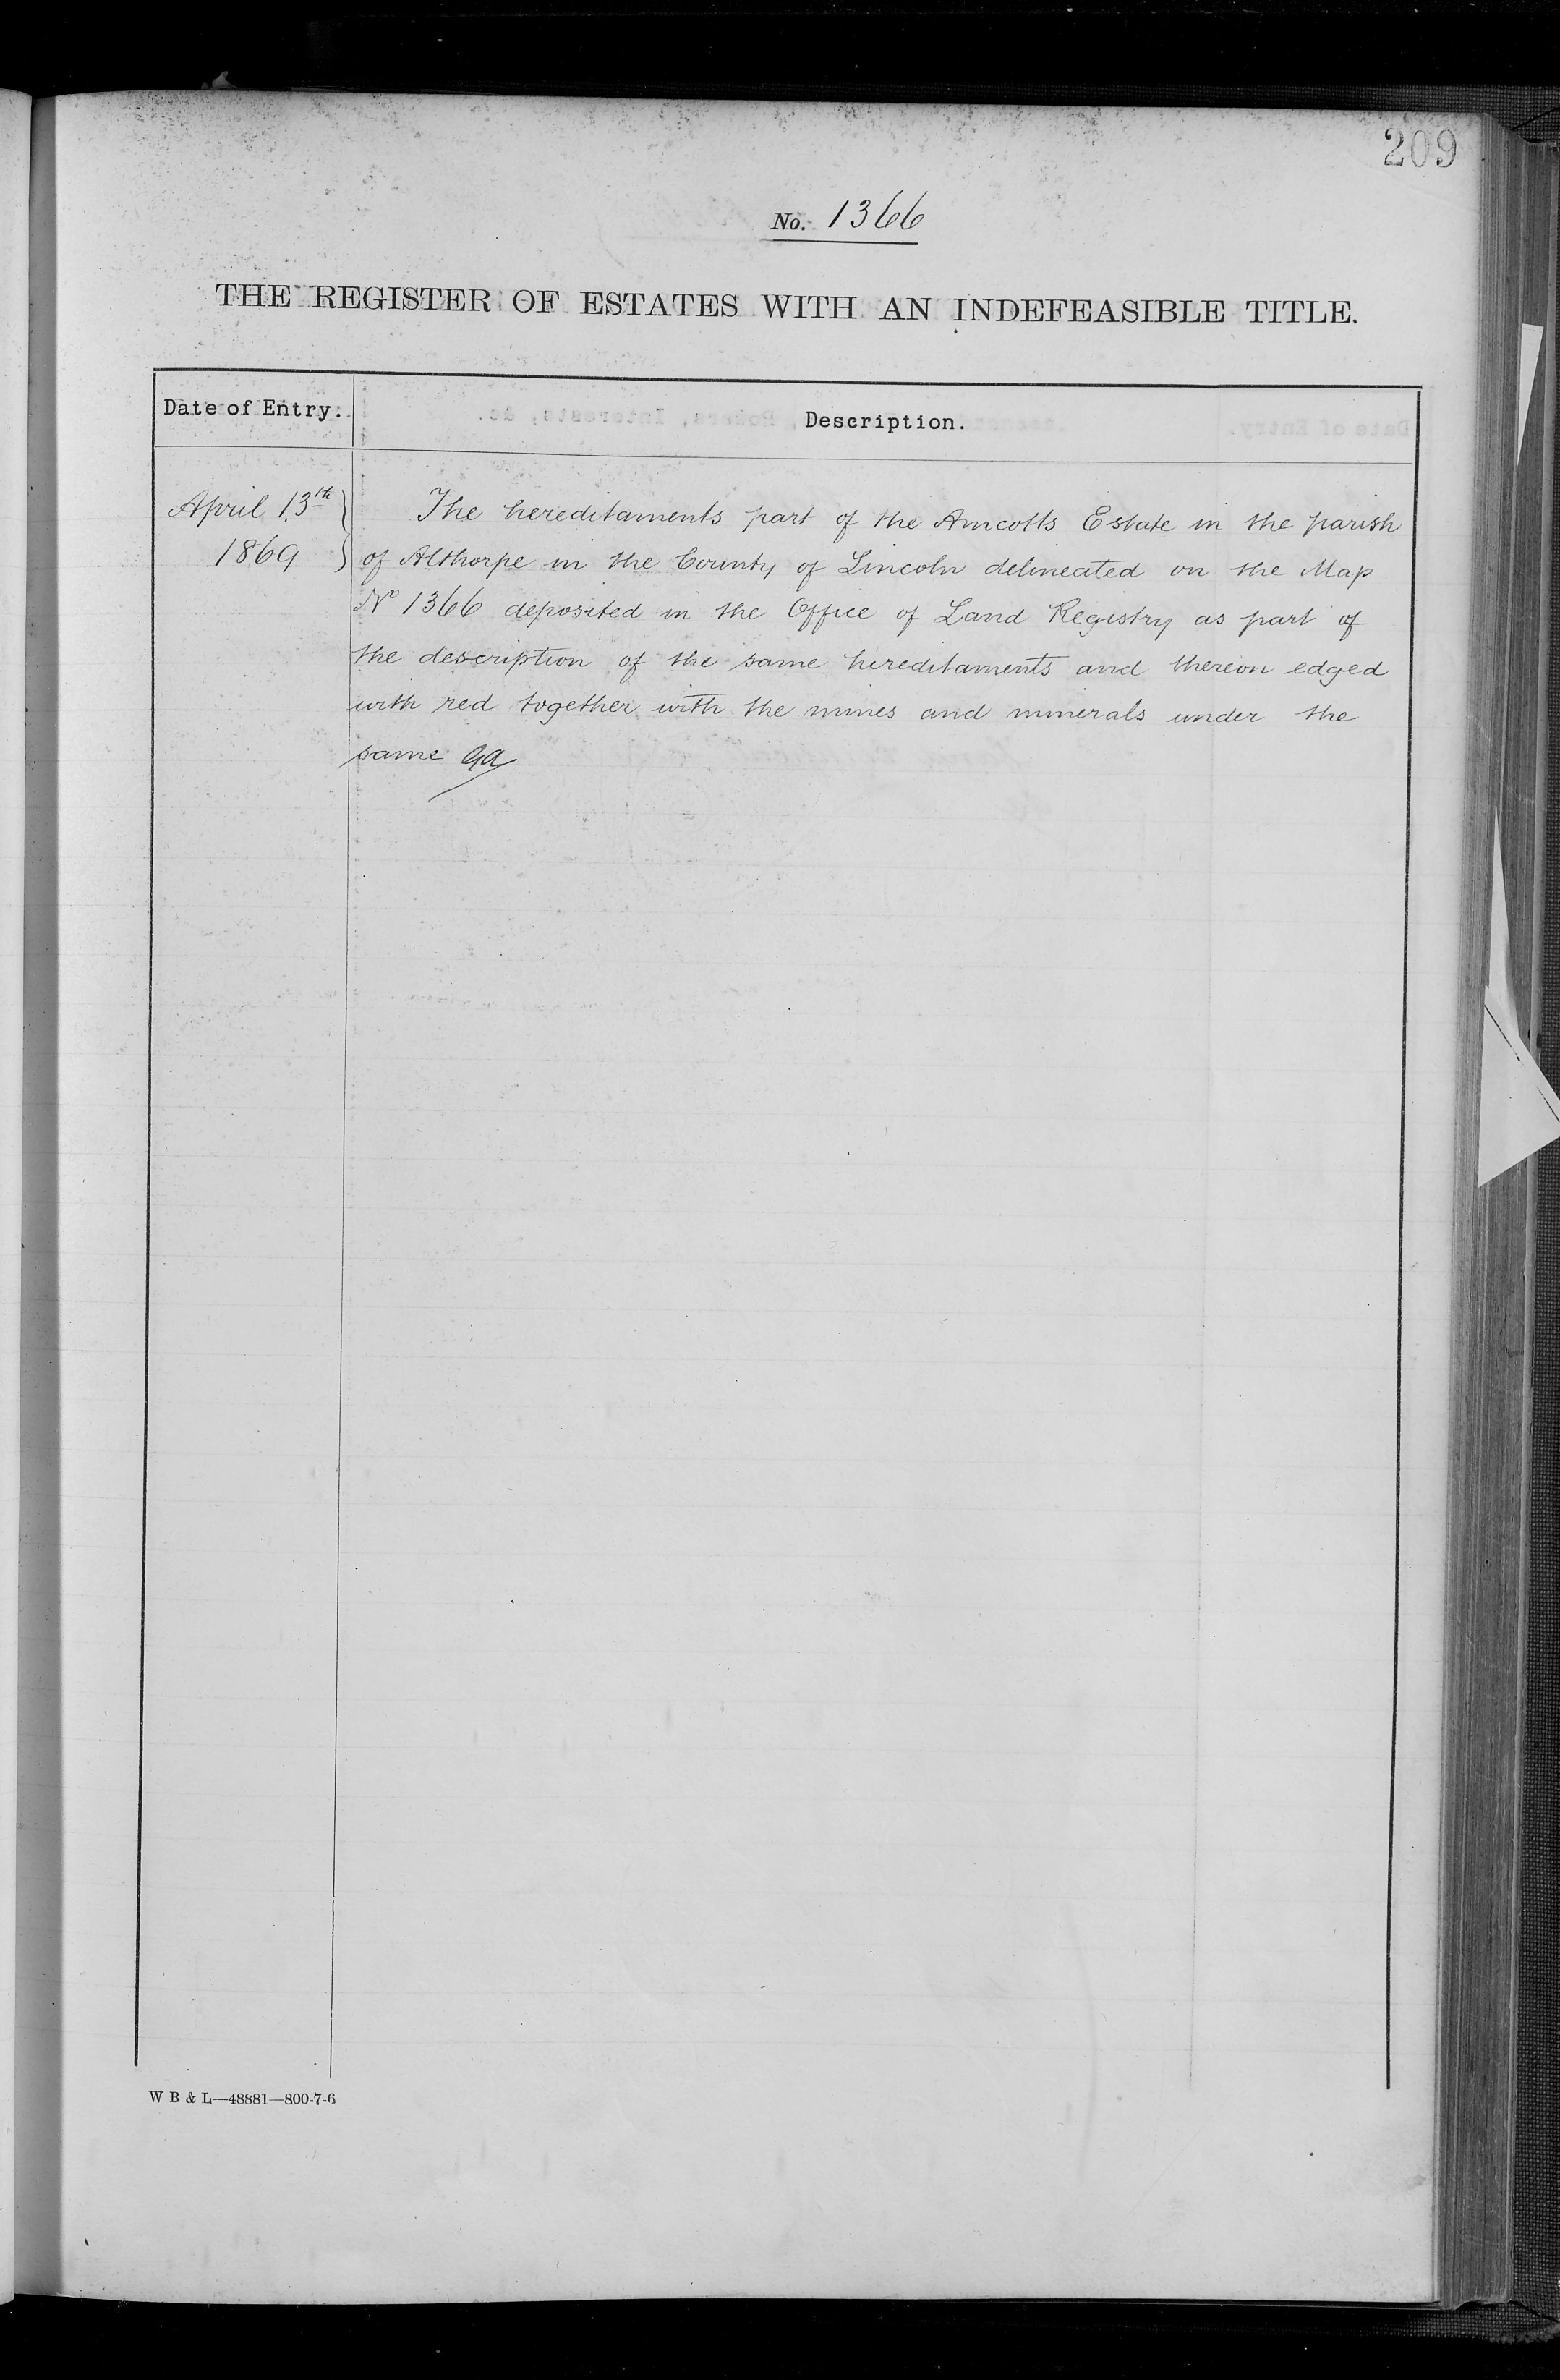 209
No. 1366
THE REGISTER OF ESTATES WITH AN INDEFEASIBLE TITLE.
Date of Entry.
Description.
April 13th
1869
The hereditaments part of the Amcotts Estate in the parish
of Althorpe in the County of Lincoln delineated on the Map
No 1366 deposited in the Office of Land Registry as part of
the description of the same hereditaments and thereon edged
with red together with the mines and minerals under the
same
W B & L—48881—800-7-6